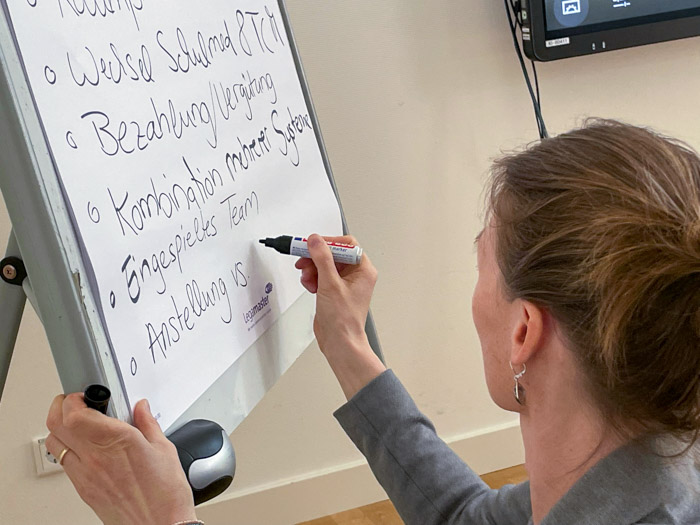 Wechsel Schulmed & TCM
Bezahlung/Vergütung
Kombination mehrerer Systeme
Eingespieltes Team
Anstellung vs.
Legamaster